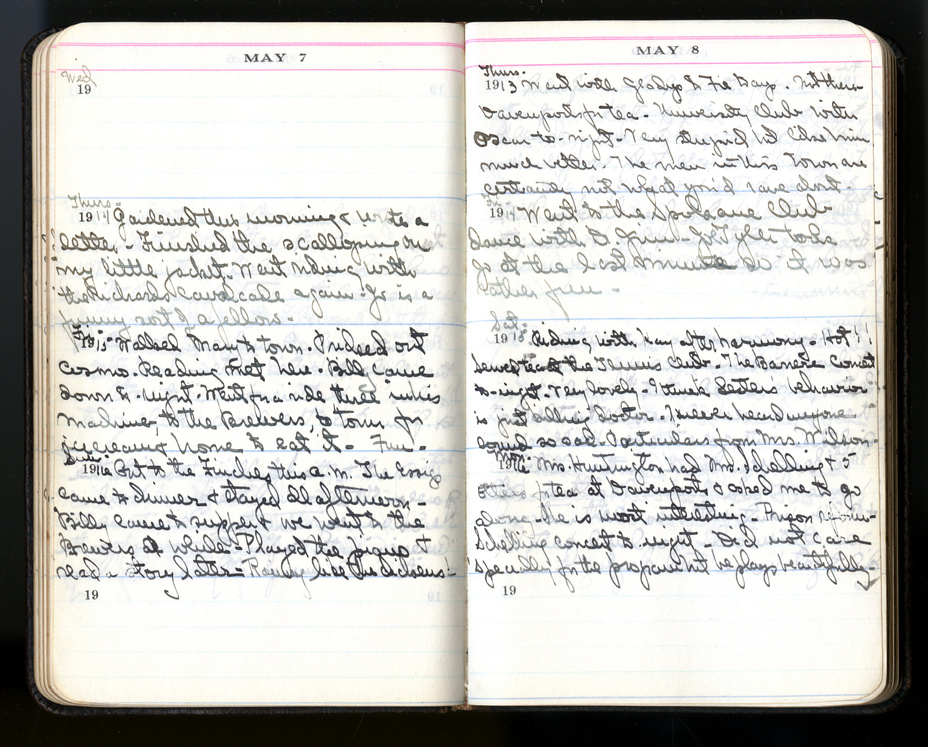 MAY 7
Wed
19
Thurs.
1914 Gardened this morning & wrote a
letter. Finished the scalloping on
my little jacket. Went riding with
the Richards cavalcade again. Jr. is a
funny sort of a fellow.
Fri.
1915 Walked Mary to town. Tried out
Cosmo. Reading here. Billy came
down to-night. Went for a ride in his
machine, to the Brewers, to town for
ice cream & home to eat it - Fun -
Sun.
1916 Got to the this a.m. The
came to dinner & stayed all afternoon -
Billy came to supper & we went to the
Brewers a while - Played the &
read a story later - like the dickens!
19
MAY 8
Thurs.
1913 Went with Gladys to Fie Days. Not there
Davenport for tea. University Club with
Oscar to-night. I am stupid but like him
much better. The men in this town are
certainly not what you'd rave about.
Fri.
1914 Went to the Spokane Club
dance with - Jr. Tyler
at the last minute so it was
rather fun -
Sat.
1915 Riding with Kay after harmony. Hot!!
Sewed tea at the Tennis Club. The concert
to-night. Very lovely. I think behavior
is just . I never heard anyone
sound so sad. Particulars from Mrs. Wilson
Mon.
1916 Mrs. Huntington had Mrs. Schelling & 5
others for tea at Davenports & asked me to go
along. He is most interesting - Prison reform -
Schelling concert to-night - Did not care
specially for the program but he plays beautifully -
19